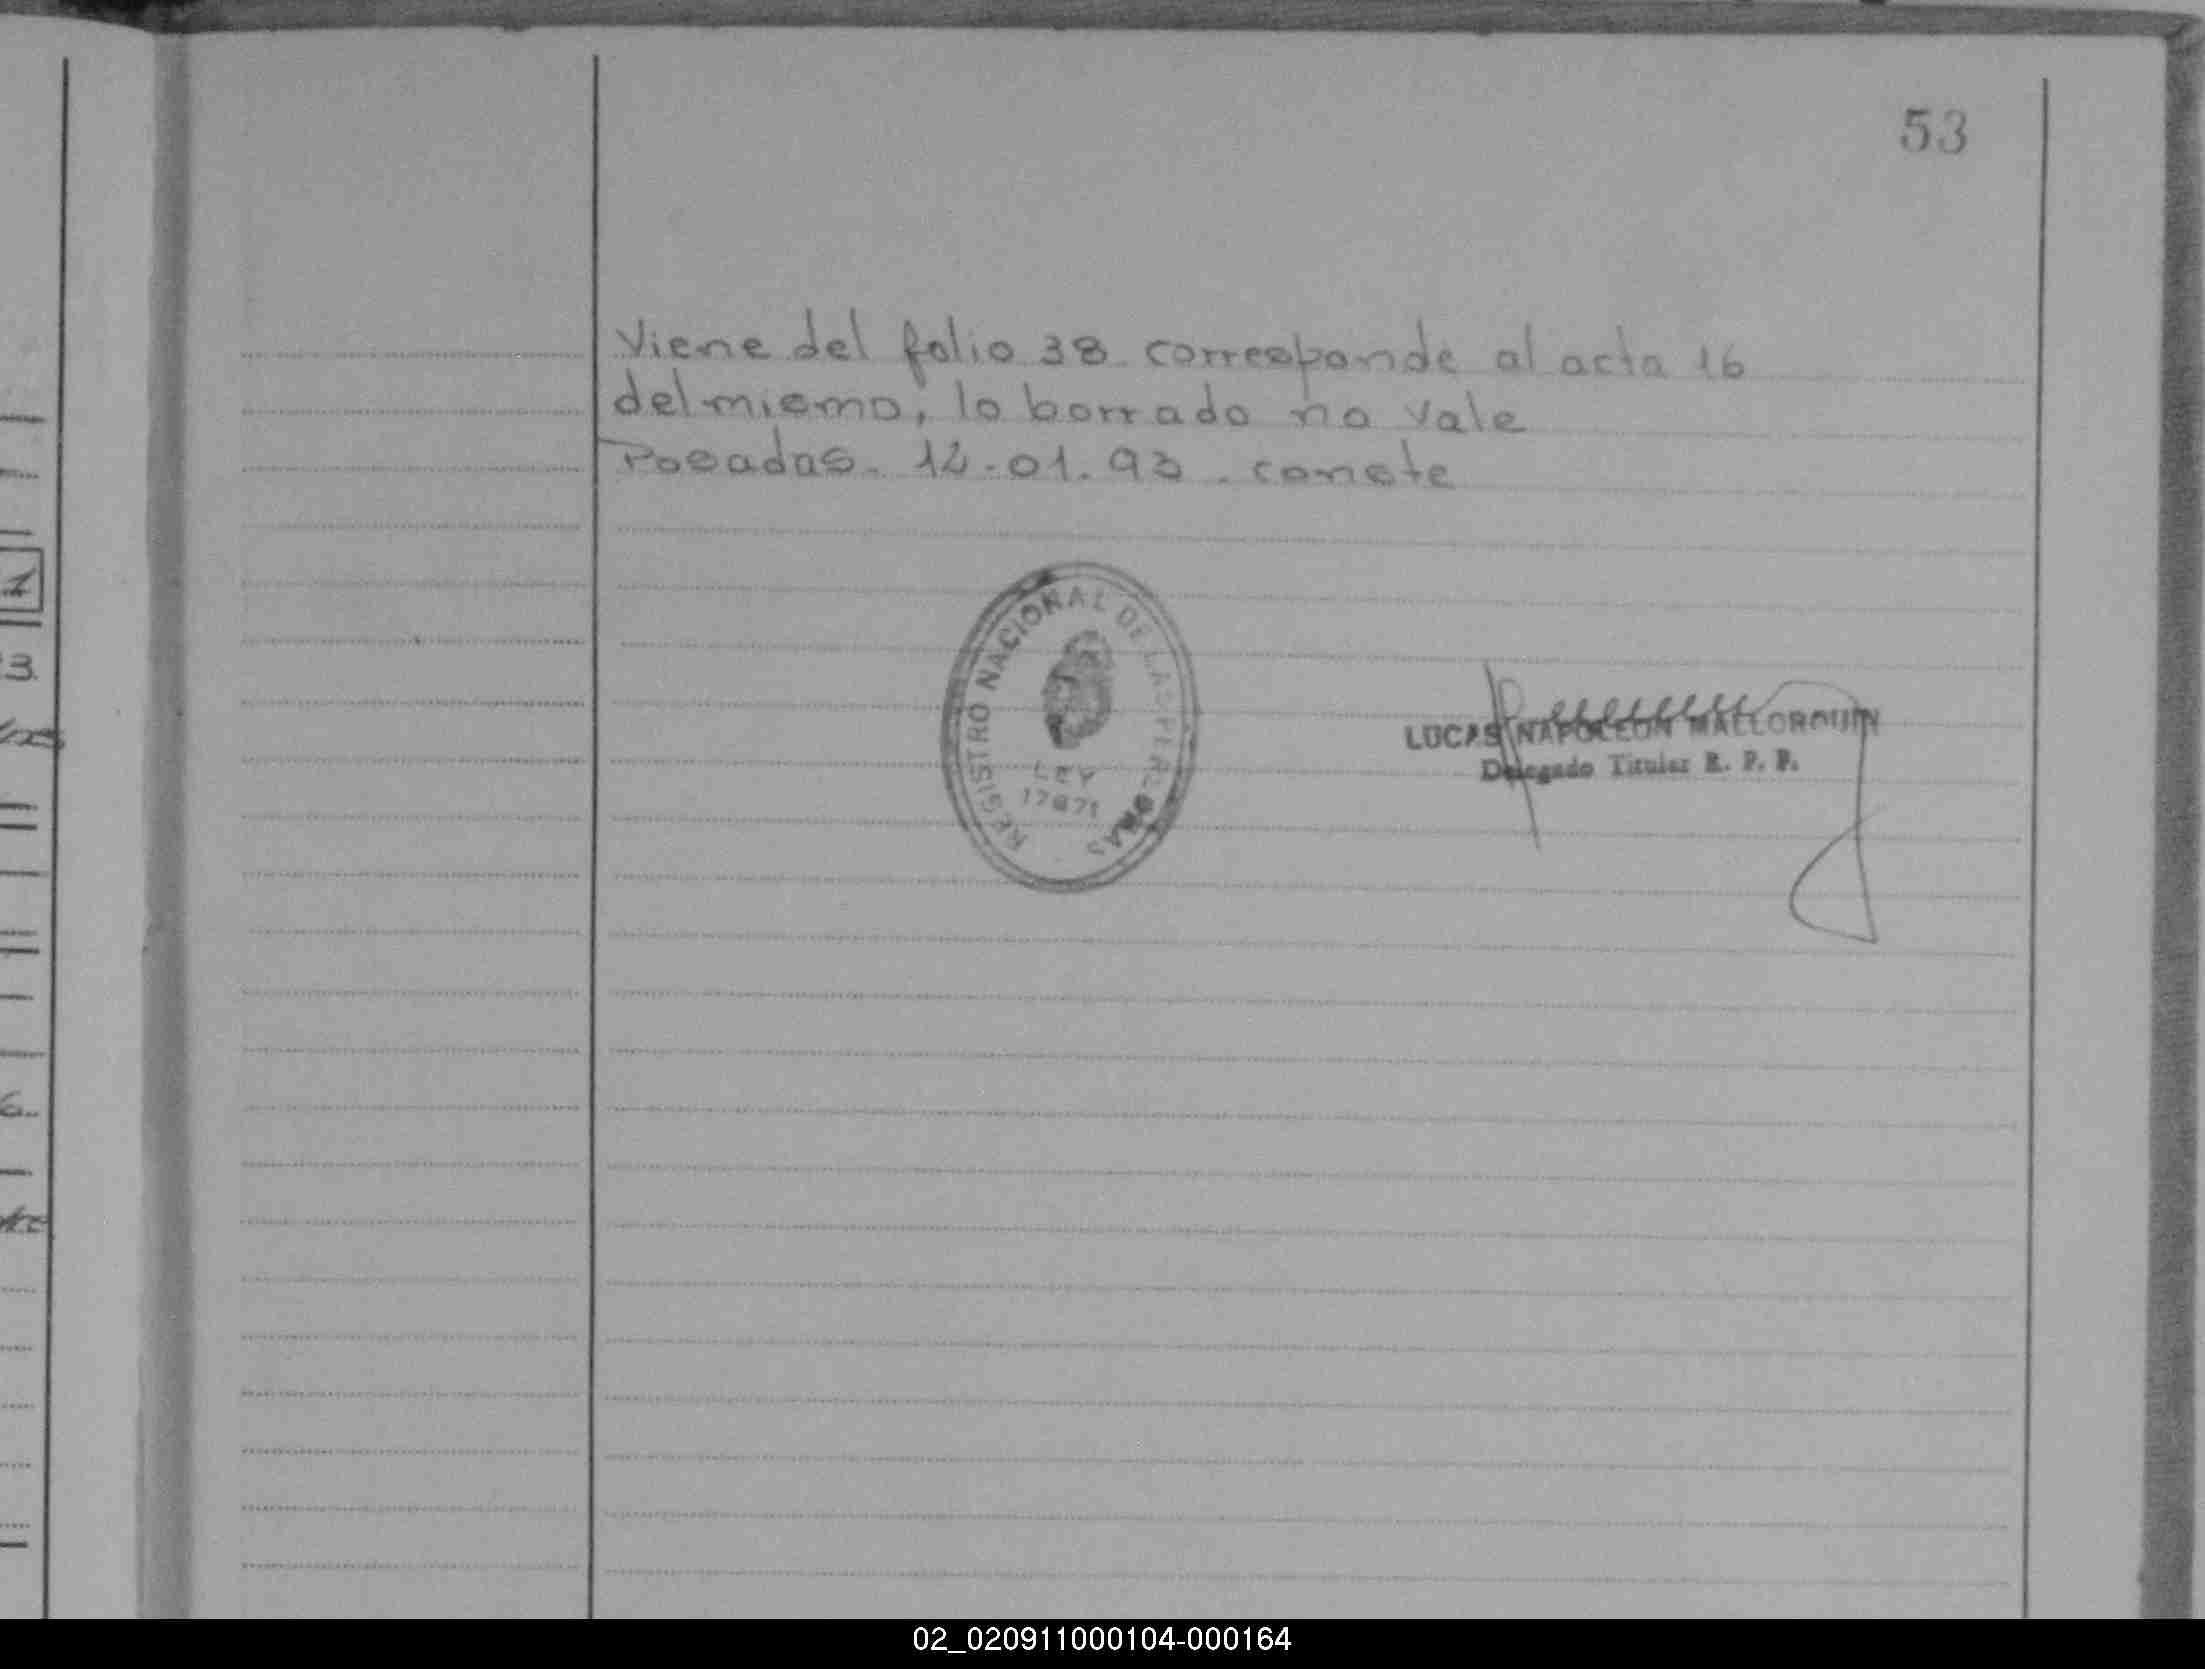 53
Viene del folio 38 corresponde al acta 16
del mismo, lo borrado no vale
Posadas. 12-01.93. conste
REGISTRO NACIONAL DE LAS PERSONAS
LEY
17671
LUCAS NAPOLEON MALLORQUIN
Delegado Titular R. P. P.
3.
6.
02_020911000104-000164